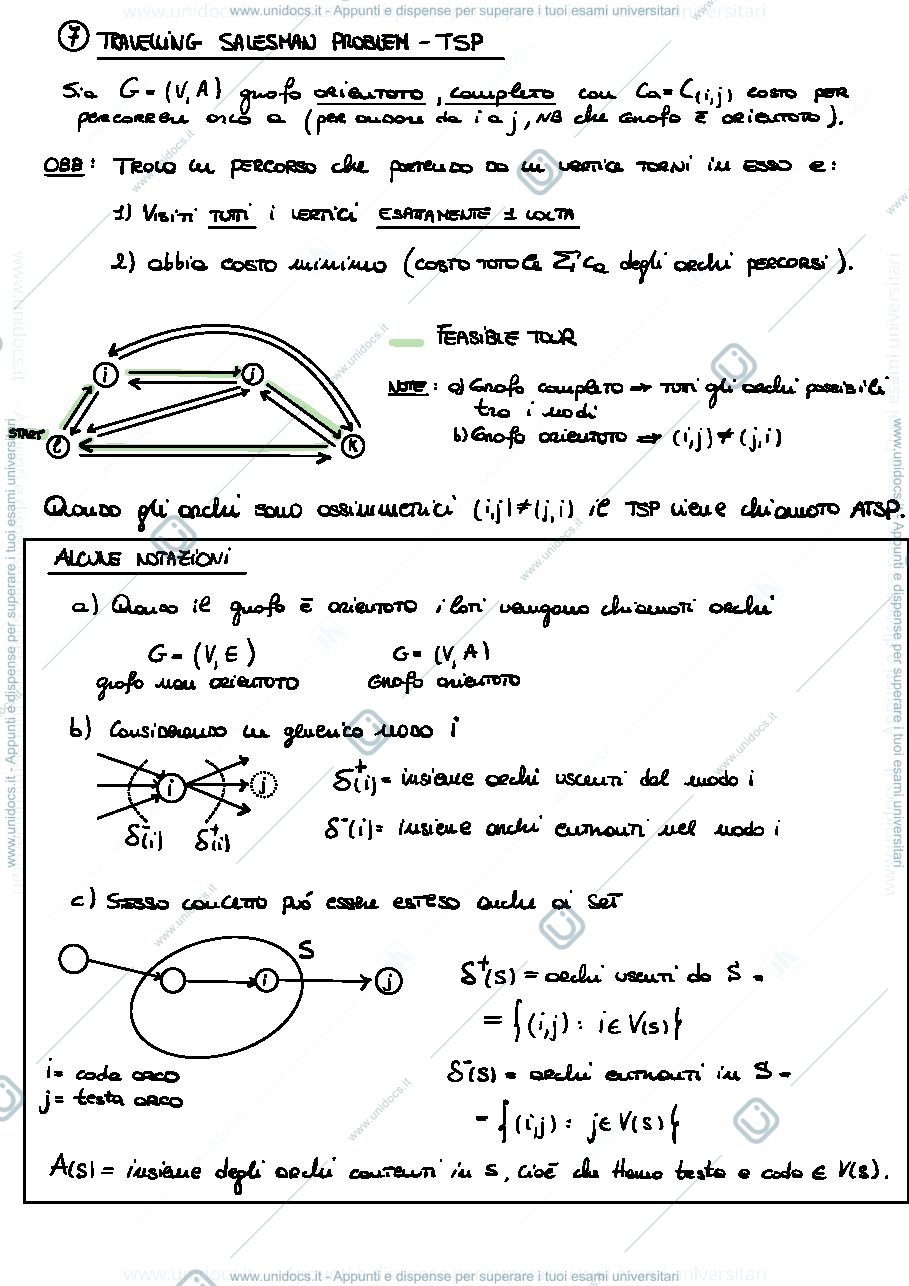 www.unidocs.it - Appunti e dispense per superare i tuoi esami universitari
7 TRAVELLING SALESMAN PROBLEM - TSP
Sia G = (V, A) grafo orientato, completo con Ca = C(i,j) costo per
percorrere arco a (per andare da i a j, NB che grafo è orientato).
OBB: Trovo un percorso che partendo da un vertice torni in esso e:
1) Visiti tutti i vertici esattamente 1 volta
2) abbia costo minimo (costo totale Σ Ca degli archi percorsi).
FEASIBLE TOUR
i j
NOTE: a) Grafo completo ⇒ tutti gli archi possibili
tra i nodi
START l k
b) Grafo orientato ⇒ (i,j) ≠ (j,i)
Quando gli archi sono assimmetrici (i,j) ≠ (j,i) il TSP viene chiamato ATSP.
ALCUNE NOTAZIONI
a) Quando il grafo è orientato i lati vengono chiamati archi
G = (V, E) G = (V, A)
grafo non orientato grafo orientato
b) Considerando un generico nodo i
i j δ⁺(i) = insieme archi uscenti dal nodo i
δ⁻(i) δ⁺(i) δ⁻(i) = insieme archi entranti nel nodo i
c) Stesso concetto può essere esteso anche ai set
S
i j δ⁺(S) = archi uscenti da S =
= {(i,j) : i ∈ V(S)}
i = coda arco δ⁻(S) = archi entranti in S =
j = testa arco
= {(i,j) : j ∈ V(S)}
A(S) = insieme degli archi contenuti in S, cioè che Hanno testa e coda ∈ V(S).
www.unidocs.it - Appunti e dispense per superare i tuoi esami universitari